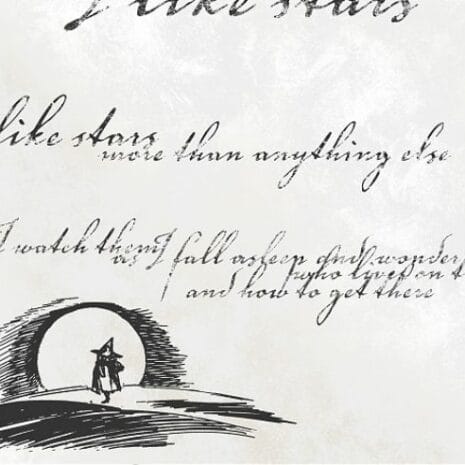 I like stars
like stars
more than anything else
I watch them
as I fall asleep and wonder
who lives on t
and how to get there